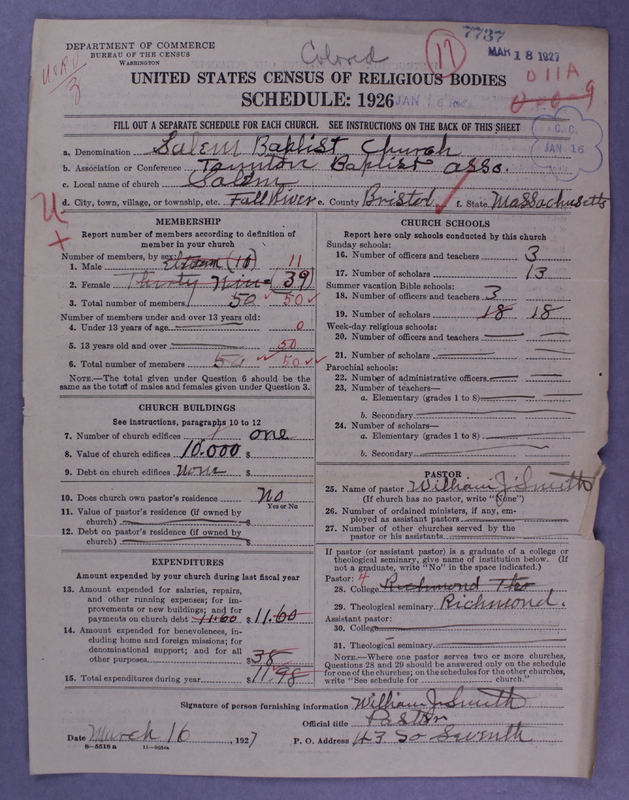 7737
DEPARTMENT OF COMMERCE
BUREAU OF THE CENSUS
WASHINGTON
Colored
17
MAR 18 1927
011A
UNITED STATES CENSUS OF RELIGIOUS BODIES
SCHEDULE: 1926
JAN 16
FILL OUT A SEPARATE SCHEDULE FOR EACH CHURCH. SEE INSTRUCTIONS ON THE BACK OF THIS SHEET
C. C.
JAN 16
a. Denomination Salem Baptist Church
b. Association or Conference Taunton Baptist asso.
c. Local name of church Salem
d. City, town, village, or township, etc. Fall River e. County Bristol f. State Massachusetts
MEMBERSHIP
Report number of members according to definition of
member in your church
Number of members, by sex:
1. Male 11
2. Female Thirty Nine 39
3. Total number of members 50 50
Number of members under and over 13 years old:
4. Under 13 years of age 0
5. 13 years old and over 50
6. Total number of members 50 50
NOTE.—The total given under Question 6 should be the
same as the total of males and females given under Question 3.
CHURCH BUILDINGS
See instructions, paragraphs 10 to 12
7. Number of church edifices 1 one
8. Value of church edifices 10.000 $
9. Debt on church edifices None $
10. Does church own pastor's residence No
Yes or No
11. Value of pastor's residence (if owned by
church) $
12. Debt on pastor's residence (if owned by
church) $
EXPENDITURES
Amount expended by your church during last fiscal year
13. Amount expended for salaries, repairs,
and other running expenses; for im-
provements or new buildings; and for
payments on church debt 11.60 $ 11.60
14. Amount expended for benevolences, in-
cluding home and foreign missions; for
denominational support; and for all
other purposes $ 38
15. Total expenditures during year $ 11.98
CHURCH SCHOOLS
Report here only schools conducted by this church
Sunday schools:
16. Number of officers and teachers 3
17. Number of scholars 13
Summer vacation Bible schools:
18. Number of officers and teachers 3
19. Number of scholars 18 18
Week-day religious schools:
20. Number of officers and teachers
21. Number of scholars
Parochial schools:
22. Number of administrative officers
23. Number of teachers—
a. Elementary (grades 1 to 8)
b. Secondary
24. Number of scholars—
a. Elementary (grades 1 to 8)
b. Secondary
PASTOR
25. Name of pastor William J. Smith
(If church has no pastor, write "None")
26. Number of ordained ministers, if any, em-
ployed as assistant pastors
27. Number of other churches served by the
pastor or his assistants
If pastor (or assistant pastor) is a graduate of a college or
theological seminary, give name of institution below. (If
not a graduate, write "No" in the space indicated.)
Pastor: 4
28. College Richmond Theo
29. Theological seminary Richmond.
Assistant pastor:
30. College
31. Theological seminary
NOTE.—Where one pastor serves two or more churches,
Questions 28 and 29 should be answered only on the schedule
for one of the churches; on the schedules for the other churches,
write "See schedule for church."
Signature of person furnishing information William J. Smith
Official title Pastor
Date March 16, 1927 P. O. Address 43 So Seventh
8-5518a